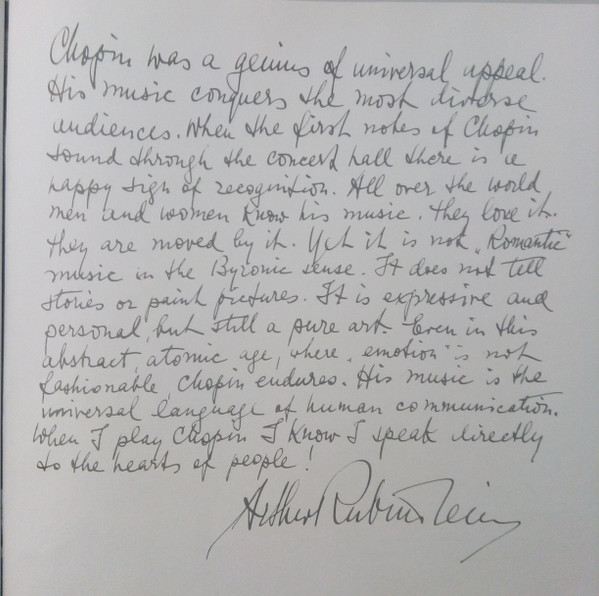 Chopin was a genius of universal appeal.
His music conquers the most diverse
audiences. When the first notes of Chopin
sound through the concert hall there is a
happy sign of recognition. All over the world
men and women know his music. They love it.
They are moved by it. Yet it is not „Romantic“
music in the Byronic sense. It does not tell
stories or paint pictures. It is expressive and
personal, but still a pure art. Even in this
abstract, atomic age, where „emotion“ is not
fashionable, Chopin endures. His music is the
universal language of human communication.
When I play Chopin I know I speak directly
to the hearts of people!
Arthur Rubinstein